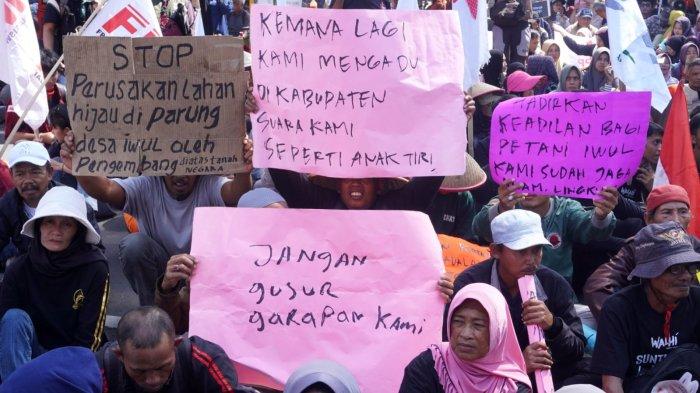 STOP
Perusakan lahan
hijau di parung
desa iwul oleh
Pengembang diatas tanah
NEGARA
KEMANA LAGI
KAMI MENGADU
DI KABUPATEN
SUARA KAMI
SEPERTI ANAK TIRI
HADIRKAN
KEADILAN BAGI
PETANI IWUL
KAMI SUDAH JAGA
JANGAN
gusur
garapan kami
WALHI